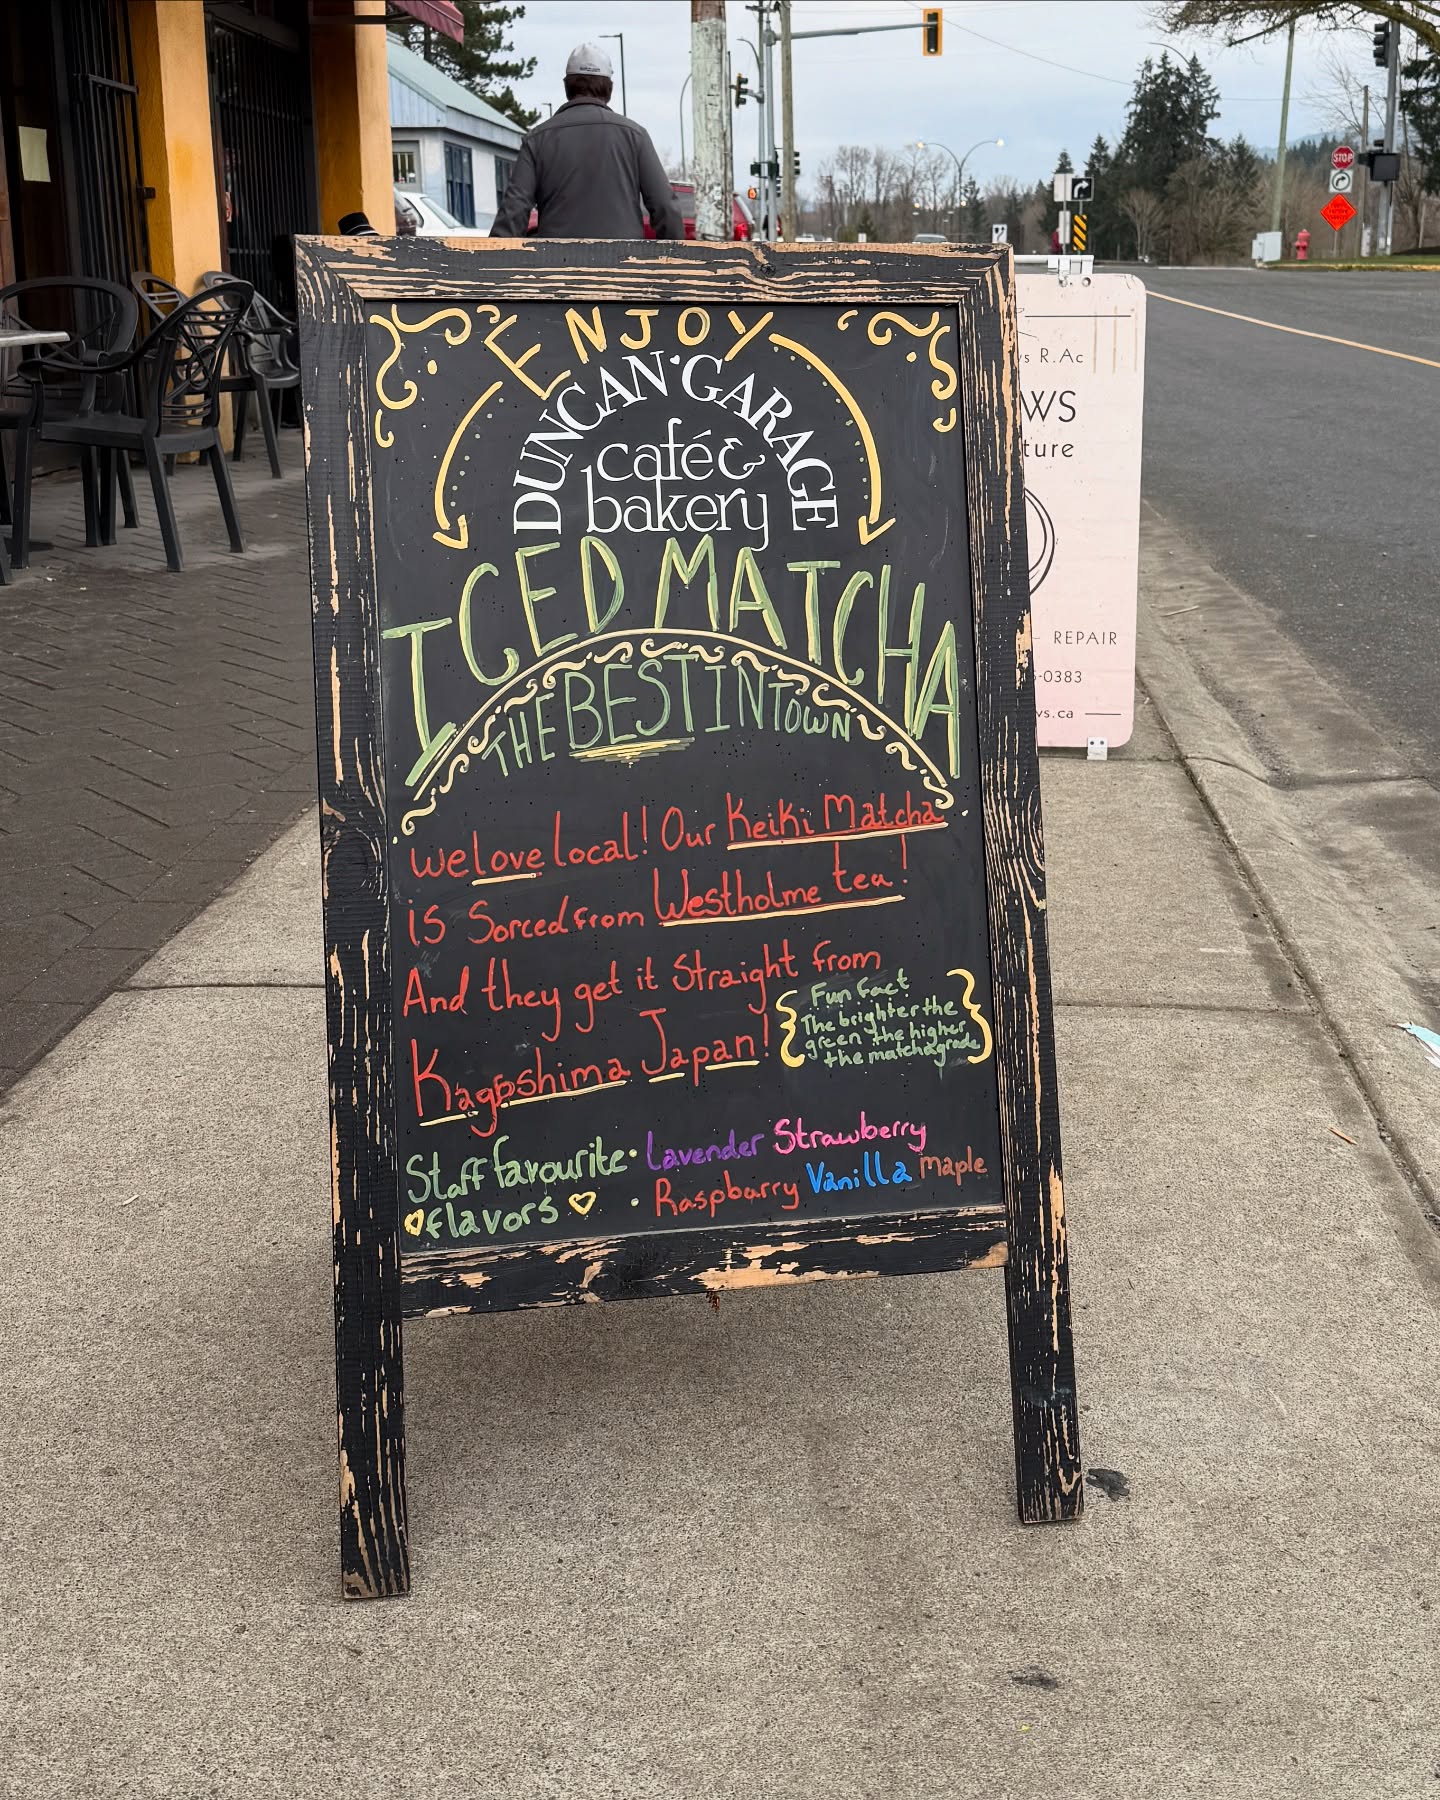 ENJOY
DUNCAN·GARAGE
café &
bakery
ICED MATCHA
THE BEST IN TOWN
we love local! Our Keiki Matcha
is Sorced from Westholme tea!
And they get it straight from
Kagoshima Japan!
Fun fact
The brighter the
green the higher
the matcha grade
Staff favourite · Lavender Strawberry
flavors · Raspbarry Vanilla maple
R.Ac
WS
ture
REPAIR
-0383
ws.ca
STOP